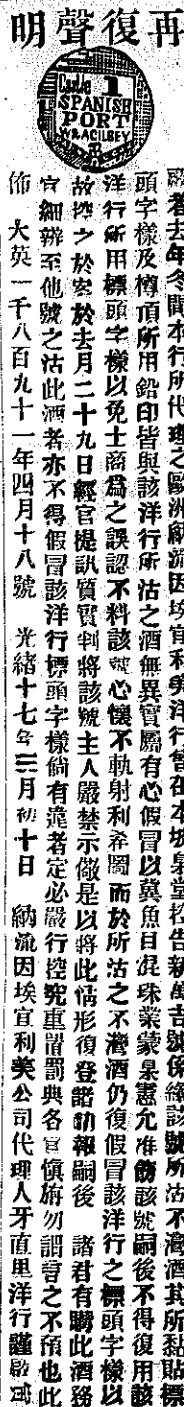 再復聲明
Castle 1
SPANISH
PORT
W & A GILBEY
啟者去年冬間本行所代理之歐洲納流因埃宜利美洋行曾在本埠臬堂控告新萬吉號係緣該號所沽不灣酒其所黏貼標
頭字樣及樽頂所用鉛印皆與該洋行所沽之酒無異實屬有心假冒以冀魚目混珠業蒙臬憲允准飭該號嗣後不得復用該
洋行所用標頭字樣以免士商為之誤認不料該號心懷不軌射利希圖而於所沽之不灣酒仍復假冒該洋行之標頭字樣以
故控之於案於去月二十九日經官提訊質實判將該號主人嚴禁示儆是以將此情形復登諸報嗣後 諸君有購此酒務
宜細辨至他號之沽此酒者亦不得假冒該洋行標頭字樣倘有違者定必嚴行控究重置罰典各宜慎旃勿謂言之不預也此
佈 大英一千八百九十一年四月十八號 光緒十七年三月初十日 納流因埃宜利美公司代理人牙直里洋行謹啟